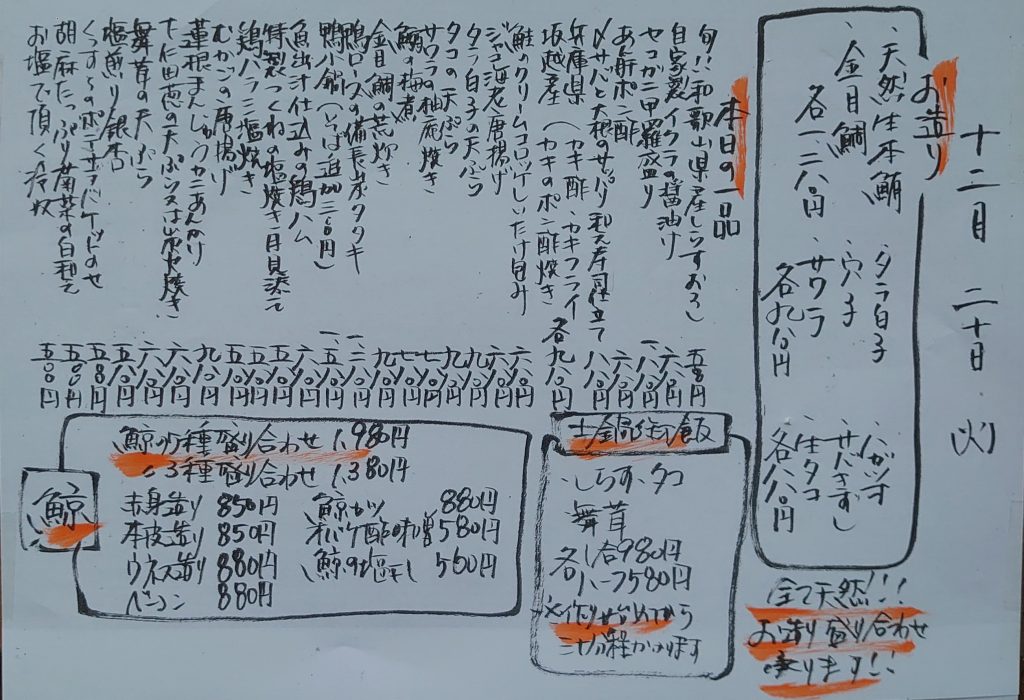 十二月 二十日 (火)
お造り
・天然生本鮪
・金目鯛
各一二八〇円
・タラ白子
・穴子
・サワラ
各九八〇円
・ハガツオ
・サバきずし
・生タコ
各八八〇円
全て天然!!!
お造り盛り合わせ
承ります!!
本日の一品
旬!!和歌山県産しらすおろし 五八〇円
自家製イクラの醤油漬け 六八〇円
セコガニ甲羅盛り
あん肝ポン酢 六八〇円
〆サバと大根のサッパリ和え寿司仕立て 八八〇円
兵庫県
坂越産
(カキ酢・カキフライ
(カキのポン酢焼き 各九八〇円
鮭のクリームコロッケしいたけ包み 六八〇円
ジャコ海老唐揚げ 六八〇円
タラ白子の天ぷら 九八〇円
タコの天ぷら 九八〇円
サワラの柚庵焼き
鰯の梅煮
金目鯛の荒炊き 九八〇円
鴨ロースの備長炭タタキ
鴨小鍋
魚出汁仕込みの鶏ハム
特製つくねの塩焼き月見添え
鶏ハラミ塩焼き
むかごの唐揚げ
蓮根まんじゅうカニあんかけ
舞茸の天ぷら
塩煎り銀杏
胡麻たっぷり菊菜の白和え 五八〇円
お塩で頂く冷奴 五〇〇円
土鍋御飯
・しらす・タコ
・舞茸
各一合980円
ハーフ580円
※作り始めてから
二十分程かかります
鯨
鯨の5種盛り合わせ 1,980円
〃3種盛り合わせ 1,380円
赤身造り 850円
本皮造り 850円
ウネス造り 880円
ベーコン 880円
鯨カツ 880円
オバケ酢味噌 580円
鯨の塩干し 560円